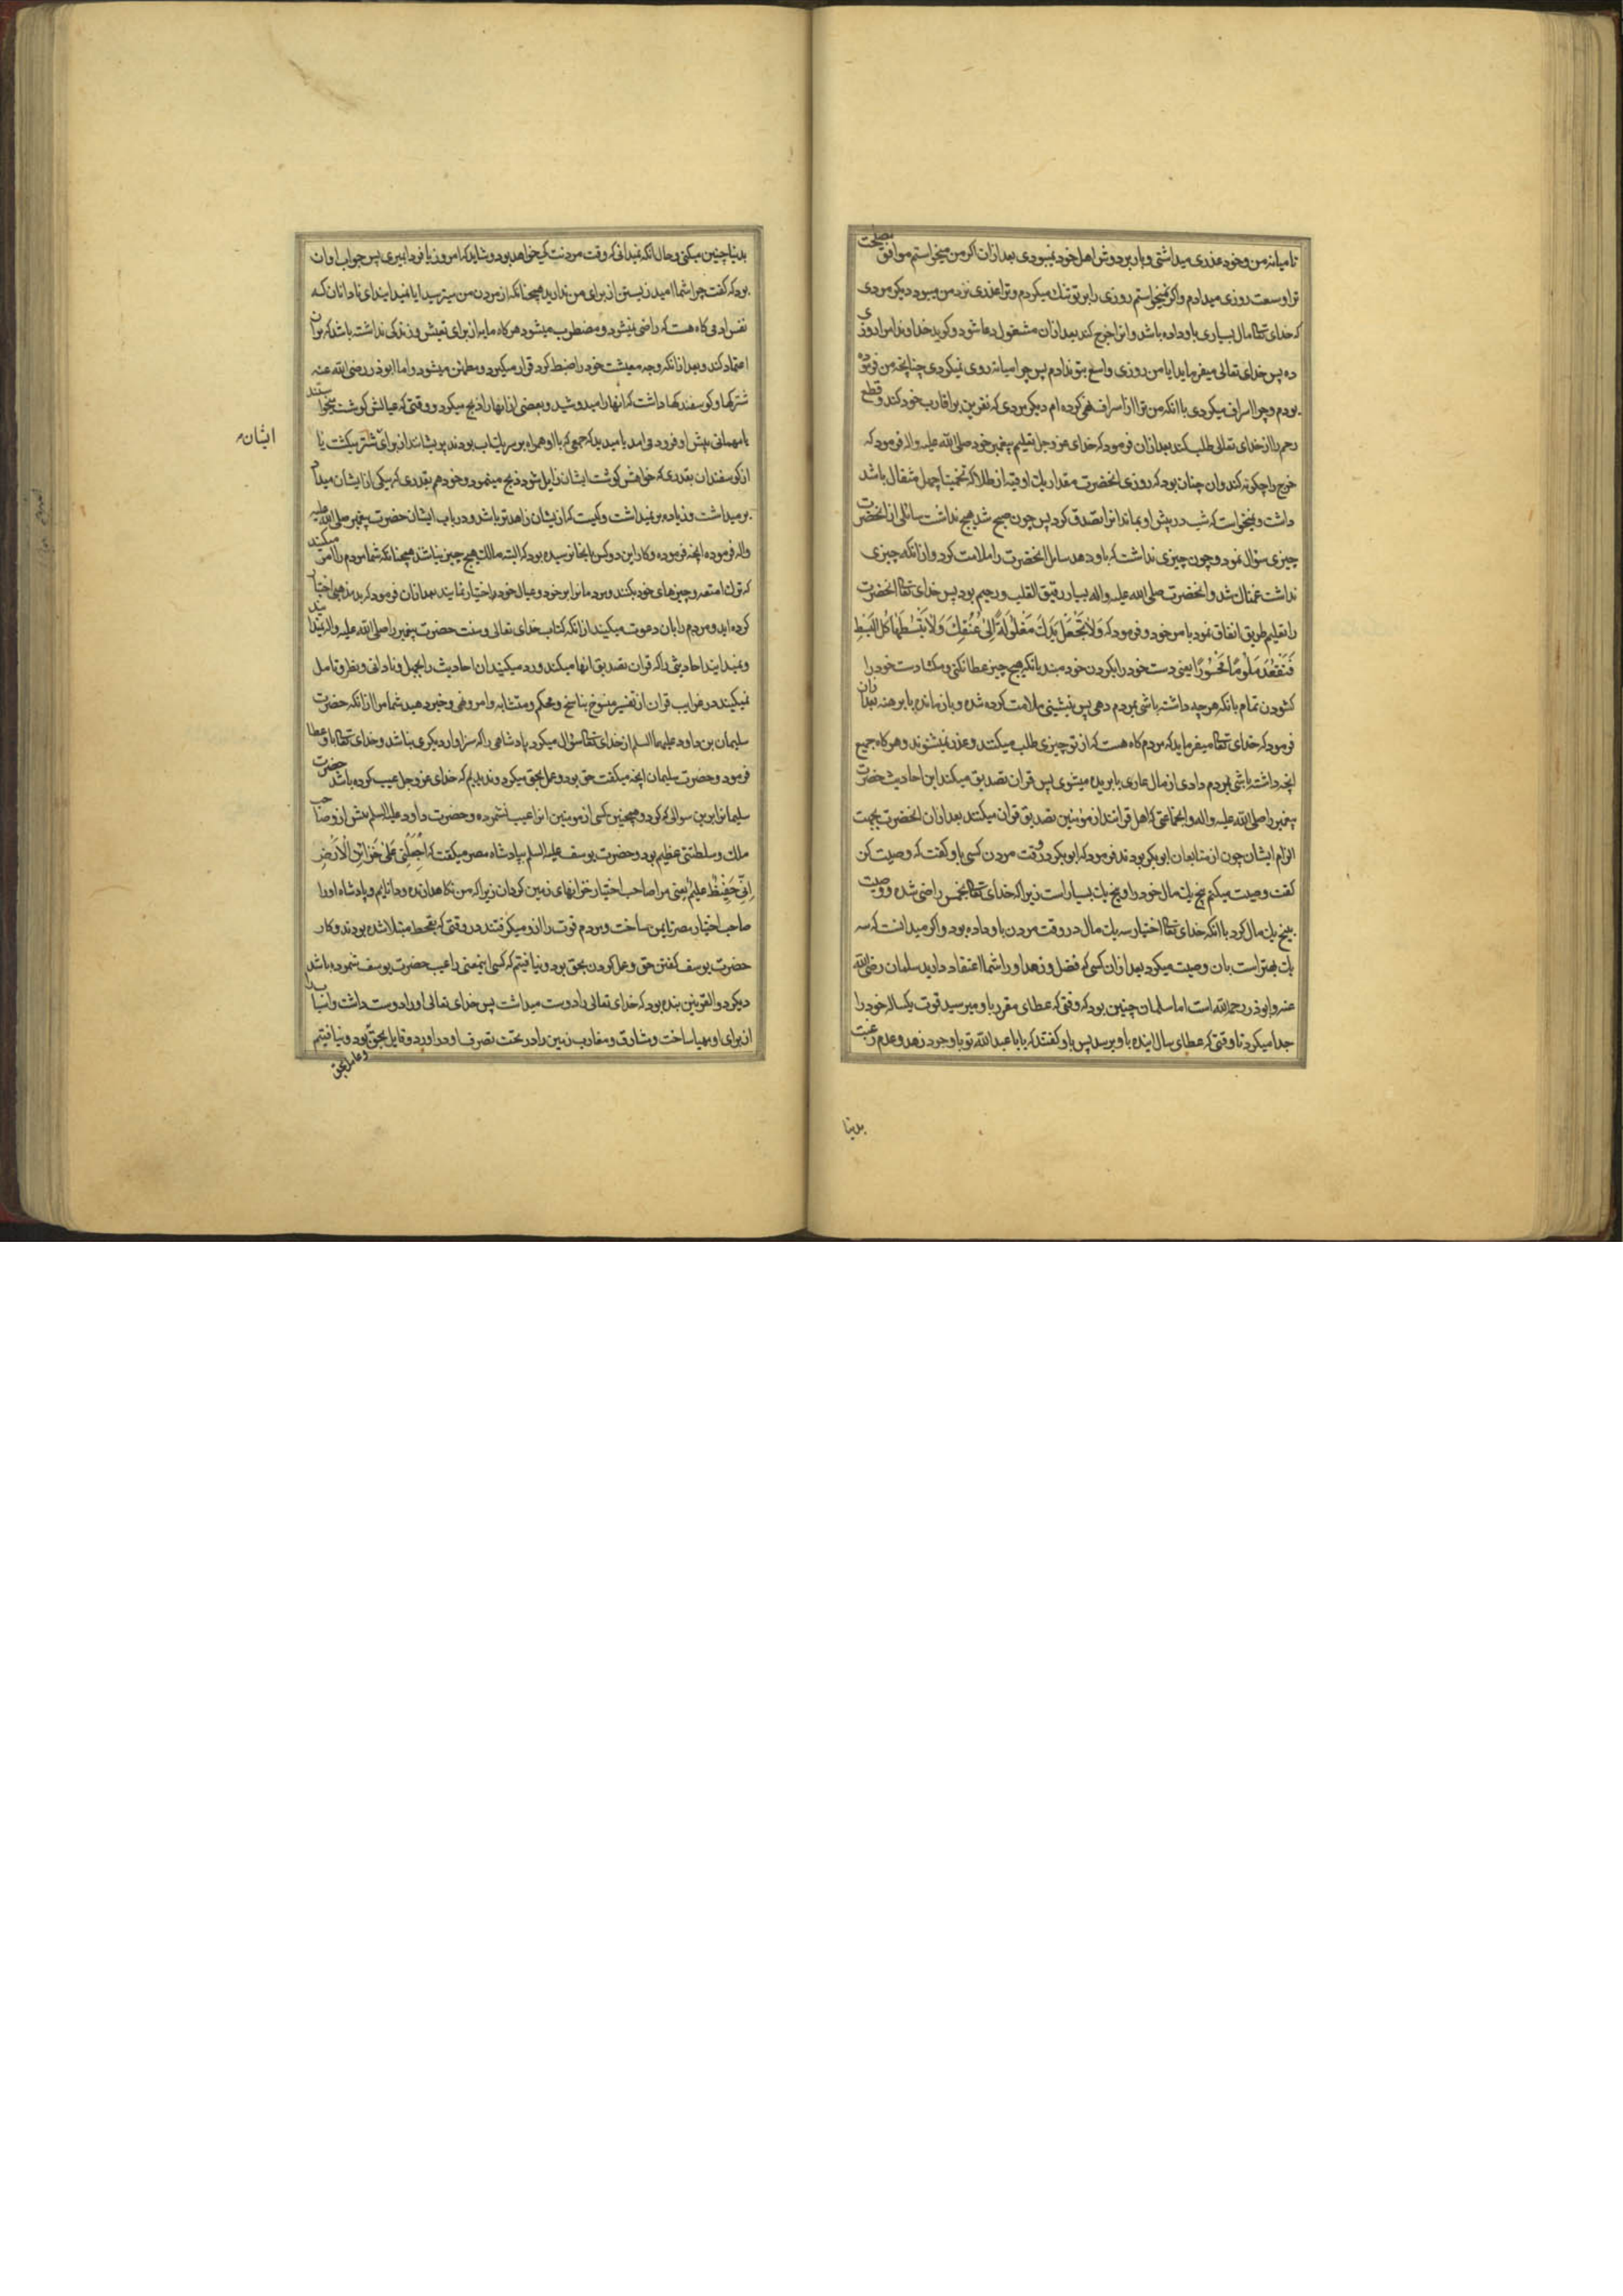 تا میانه من و خود عذری میداشتی و بار بر دوش اهل خود نمیبودی بعد ازان اکر من میخواستم موافق مصلحت
ترا وسعت روزی میدادم و اکر نمیخواستم روزی را بر تو تنك میکردم و ترا عذری نزد من میبود دیکر مردی
که خدای تعالی مال بسیاری باو داده باشد و انرا خرج کند بعد ازان مشغول دعا شود و کوید خداوندا مرا روزی
ده پس خدای تعالی میفرماید ایا من روزی واسع بتو ندادم پس چرا میانه روی نمیکردی چنانچه من فرموده
بودم و چرا اسراف میکردی با انکه من ترا از اسراف نهی کرده ام دیکر مردی که نفرین بر اقارب خود کند و قطع
رحم را از خدای تعالی طلب کند بعد ازان فرمود که خدای عز و جل تعلیم پیغمبر خود صلی الله علیه و اله فرمود که
خرج را چکونه کند وان چنان بود که روزی انحضرت مقدار یك اوقیه از طلا که تخمینا چهل مثقال باشد
داشت و نمیخواست که شب در پیش او بماند انرا تصدق کرد پس چون صبح شد هیچ نداشت سائلی از انحضرت
چیزی سؤال نمود و چون چیزی نداشت که باو دهد سایل انحضرت را ملامت کرد و از انکه چیزی
نداشت غمناك شد و انحضرت صلی الله علیه و اله بسیار رقیق القلب و رحیم بود پس خدای تعالی انحضرت
را تعلیم طریق انفاق نمود بامر خود و فرمود که وَلَا تَجْعَلْ يَدَكَ مَغْلُولَةً إِلَىٰ عُنُقِكَ وَلَا تَبْسُطْهَا كُلَّ الْبَسْطِ
فَتَقْعُدَ مَلُومًا مَحْسُورًا یعنی دست خود را بکردن خود مبند بانکه هیچ چیز عطا نکنی و مکشا دست خود را
کشودن تمام بانکه هر چه داشته باشی بمردم دهی پس بنشینی ملامت کرده شده و باز مانده یا برهنه بعد ازان
فرمود که خدای تعالی میفرماید که مردم کاه هست که از تو چیزی طلب میکنند و عذر نمیشنوند و هر کاه جمیع
انچه داشته باشی بمردم دادی از مال عاری یا بریده میشوی پس قران تصدیق میکند این احادیث حضرت
پیغمبر را صلی الله علیه و اله و انجماعتی که اهل قرانند از مؤمنین تصدیق قران میکنند بعد ازان انحضرت بجهت
الزام ایشان چون از متابعان ابو بکر بودند فرمود که ابو بکر در وقت مردن کسی باو کفت که وصیت کن
کفت وصیت میکنم پنج یك مال خود را و پنج یك بسیار است زیرا که خدای تعالی بخمس راضی شده و وصیت
پنج یك مال کرد با انکه خدای تعالی اختیار سه یك مال در وقت مردن باو داده بود و اکر میدانست که سه
یك بهتر است بان وصیت میکرد بعد ازان کسی که فضل و زهد او را شما اعتقاد دارید سلمان رضی الله
عنه و ابوذر رحمه الله است اما سلمان چنین بود که وقتی که عطای مقرر باو میرسید قوت یکساله خود را
جدا میکرد تا وقتی که عطای سال اینده باو برسد پس باو کفتند که یا با عبد الله تو با وجود زهد و عدم رغبت
بدنیا
بدنیا چنین میکنی و حال انکه نمیدانی که وقت مردنت کی خواهد بود و شاید که امروز یا فردا بمیری پس جواب او ان
بود که کفت چرا شما امید زیستن از برای من ندارید همچنانکه از مردن من میترسید ایا نمیدانید ای نادانان که
نفس ادمی کاه هست که راضی نمیشود و مضطرب میشود هر کاه مایه از برای تعیش و زندکی نداشته باشد که بران
اعتماد کند و بعد از انکه وجه معیشت خود را ضبط کرد قرار میکیرد و مطمئن میشود و اما ابوذر رضی الله عنه
شترکها و کوسفندکها داشت که انها را میدوشید و بعضی از انها را ذبح میکرد و وقتی که عیالش کوشت میخواستند
یا مهمانی پیش او فرود می امد یا میدید که جمعی که با او همراه بر سر یك اب بودند پریشانند از برای ایشان شتر میکشت یا
از کوسفندان بقدری که خواهش کوشت ایشان زایل شود ذبح مینمود و خود هم بقدری که بیکی از ایشان میداد
بر میداشت و زیاده بر نمیداشت و کیست که از ایشان زاهدتر باشد و در باب ایشان حضرت پیغمبر صلی الله علیه
و اله فرموده انچه فرموده و کار این دو کس بانجا نرسیده بود که البته مالك هیچ چیز نباشند همچنانکه شما مردم را امر میکنید
که ترك امتعه و چیزهای خود بکنند و مردمانرا بر خود و عیال خود اختیار نمایند بعد ازان فرمود که بد مذهبی اختیار
کرده اید و مردم را بان دعوت میکنید از انکه کتاب خدای تعالی و سنت حضرت پیغمبر را صلی الله علیه و اله نمیدانید
و نمیدانید احادیثی را که قران تصدیق انها میکند و رد میکنید ان احادیث را بجهل و نادانی و نظر و تامل
نمیکنید در غرایب قران از تفسیر منسوخ بناسخ و محکم و متشابه و امر و نهی و خبر دهید شما مرا از انکه حضرت
سلیمان بن داود علیهما السلم از خدای تعالی سؤال میکرد پادشاهی را که سزاوار دیکری نباشد و خدای تعالی باو عطا
فرمود و حضرت سلیمان انچه میکفت حق بود و عمل بحق میکرد و ندیدیم که خدای عز و جل عیب کرده باشد حضرت
سلیمانرا برین سوالی که کرد و همچنین کسی از مومنین انرا عیب نشمرده و حضرت داود علیه السلم پیش ازو صاحب
ملك و سلطنتی عظیم بود و حضرت یوسف علیه السلم بپادشاه مصر میکفت که اجْعَلْنِي عَلَىٰ خَزَائِنِ الْأَرْضِ
إِنِّي حَفِيظٌ عَلِيمٌ یعنی مرا صاحب اختیار خزانهای زمین کردان زیرا که من نکاهدارنده و دانایم و پادشاه او را
صاحب اختیار مصر تا یمن ساخت و مردم قوت را ازو میکرفتند در وقتی که بقحط مبتلا شده بودند و کار
حضرت یوسف کفتن حق و عمل کردن بحق بود و نیافتیم که کسی اینمعنی را عیب حضرت یوسف شمرده باشد
دیکر ذوالقرنین بنده بود که خدای تعالی را دوست میداشت پس خدای تعالی او را دوست داشت و اسباب را
از برای او مهیا ساخت و مشارق و مغارب زمین را در تحت تصرف او در اورد و قایل بحق بود و نیافتیم
و عامل بحق
ایشان